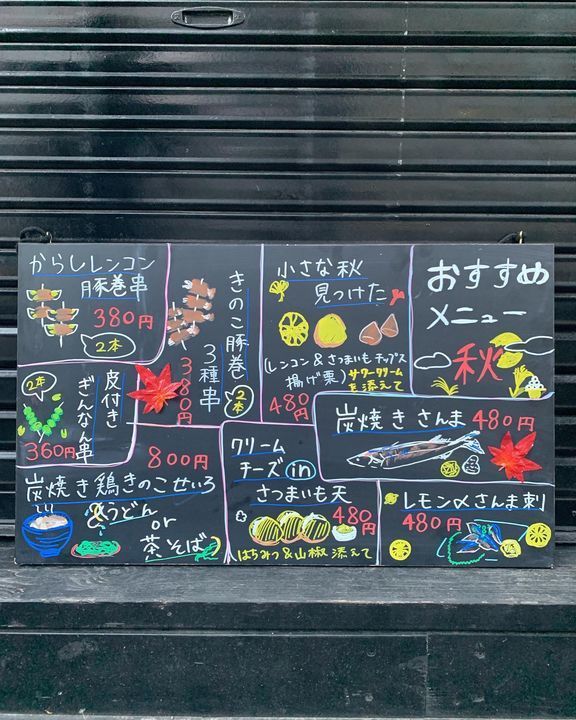 おすすめ
メニュー
秋
からしレンコン
豚巻串
380円
2本
きのこ豚巻
3種串
380円
2本
小さな秋
見つけた
(レンコン&さつまいもチップス
揚げ栗)サワークリーム
を添えて
480円
皮付き
ぎんなん串
2本
360円
炭焼きさんま 480円
800円
炭焼き鶏きのこせいろ
&うどん
or
茶そば
クリーム
チーズin
さつまいも天
480円
はちみつ&山椒添えて
レモン〆さんま刺
480円